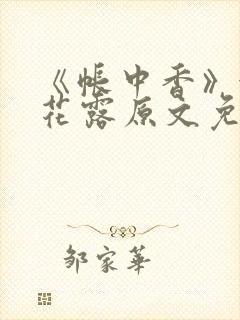 《帐中香》
花露原文免
邹家华